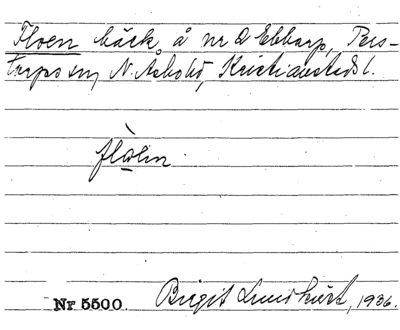 Floen bäck å nr 2 Ebbarp, Pers-
torps sn, N. Åsbohd, Kristianstads l.
Nr 5500. Birgit Lundkvist, 1936.